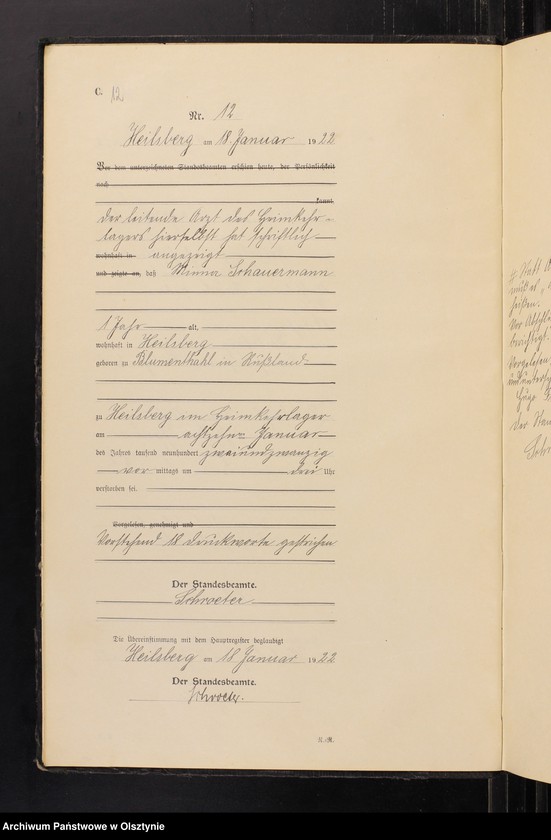 C. 12
Nr. 12
Heilsberg am 18 Januar 1922
Vor dem unterzeichneten Standesbeamten erschien heute, der Persönlichkeit
nach
kannt,
der leitende Arzt des Heimkehr-
lagers hierselbst hat schriftlich
wohnhaft in angezeigt
und zeigte an, daß Minna Schauermann
1 Jahr alt,
wohnhaft in Heilsberg
geboren zu Blumenthahl in Rußland
zu Heilsberg im Heimkehrlager
am achtzehn Januar
des Jahres tausend neunhundert zweiundzwanzig
vor mittags um drei Uhr
verstorben sei.
Vorgelesen, genehmigt und
Vorstehend 18 Druckworte gestrichen
Der Standesbeamte.
Schroeter
Die Übereinstimmung mit dem Hauptregister beglaubigt
Heilsberg am 18 Januar 1922
Der Standesbeamte.
Schroeter.
statt
heißen.
Vorgelesen
Der
Archiwum Państwowe w Olsztynie